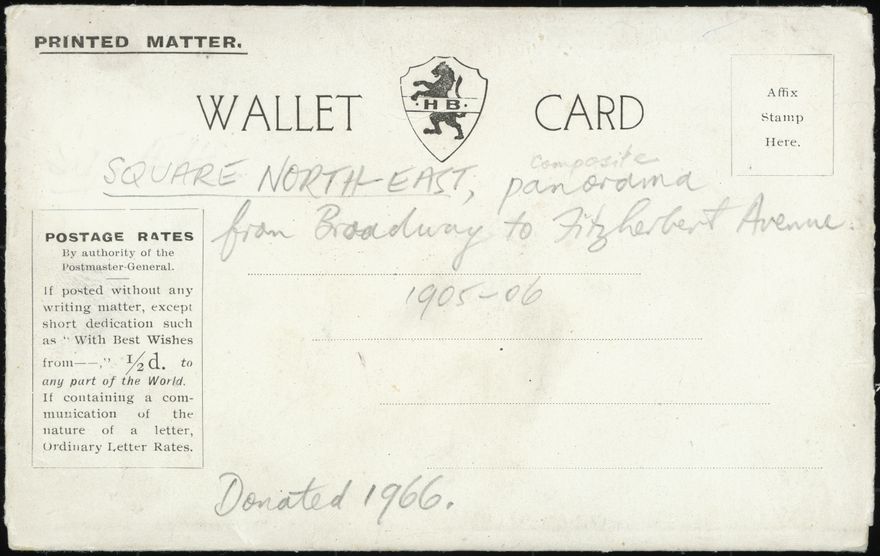 PRINTED MATTER.
WALLET CARD
H B
Affix
Stamp
Here.
SQUARE NORTH-EAST, composite panorama
from Broadway to Fitzherbert Avenue.
1905-06
POSTAGE RATES
By authority of the
Postmaster-General.
If posted without any
writing matter, except
short dedication such
as "With Best Wishes
from——," 1/2d. to
any part of the World.
If containing a com-
munication of the
nature of a letter,
Ordinary Letter Rates.
Donated 1966.